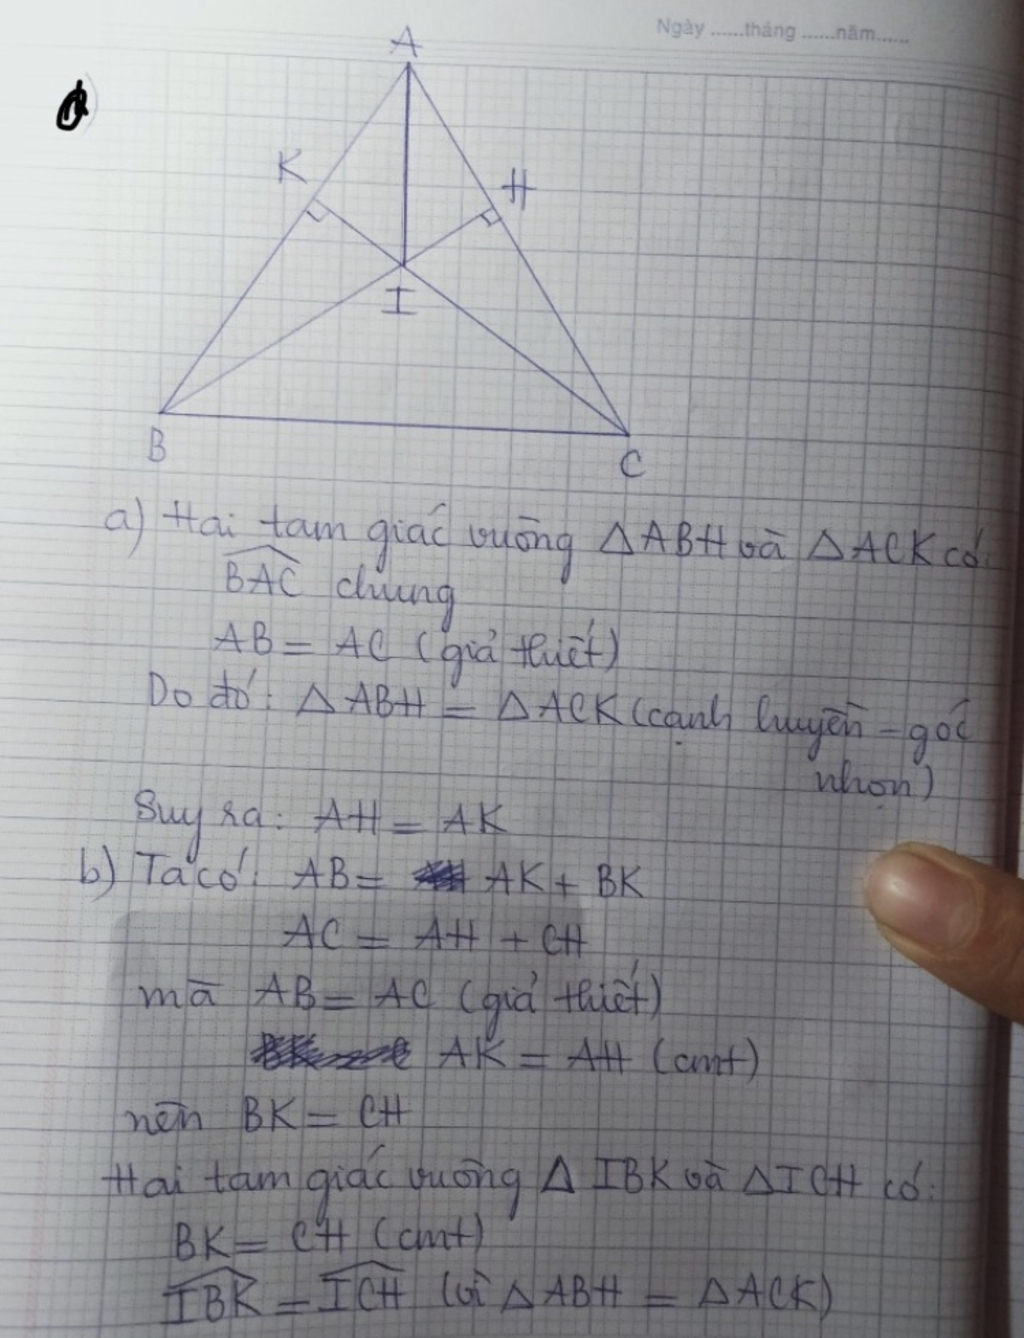 Ngày ......tháng ......năm......
A
K
H
I
B
C
a) Hai tam giác vuông △ABH và △ACK có:
$\widehat{BAC}$ chung
AB = AC (giả thiết)
Do đó: △ABH = △ACK (cạnh huyền - góc
nhọn)
Suy ra: AH = AK
b) Ta có: AB = AK + BK
AC = AH + CH
mà AB = AC (giả thiết)
AK = AH (cmt)
nên BK = CH
Hai tam giác vuông △ IBK và △ICH có:
BK = CH (cmt)
$\widehat{IBK}$ = $\widehat{ICH}$ (vì △ABH = △ACK)